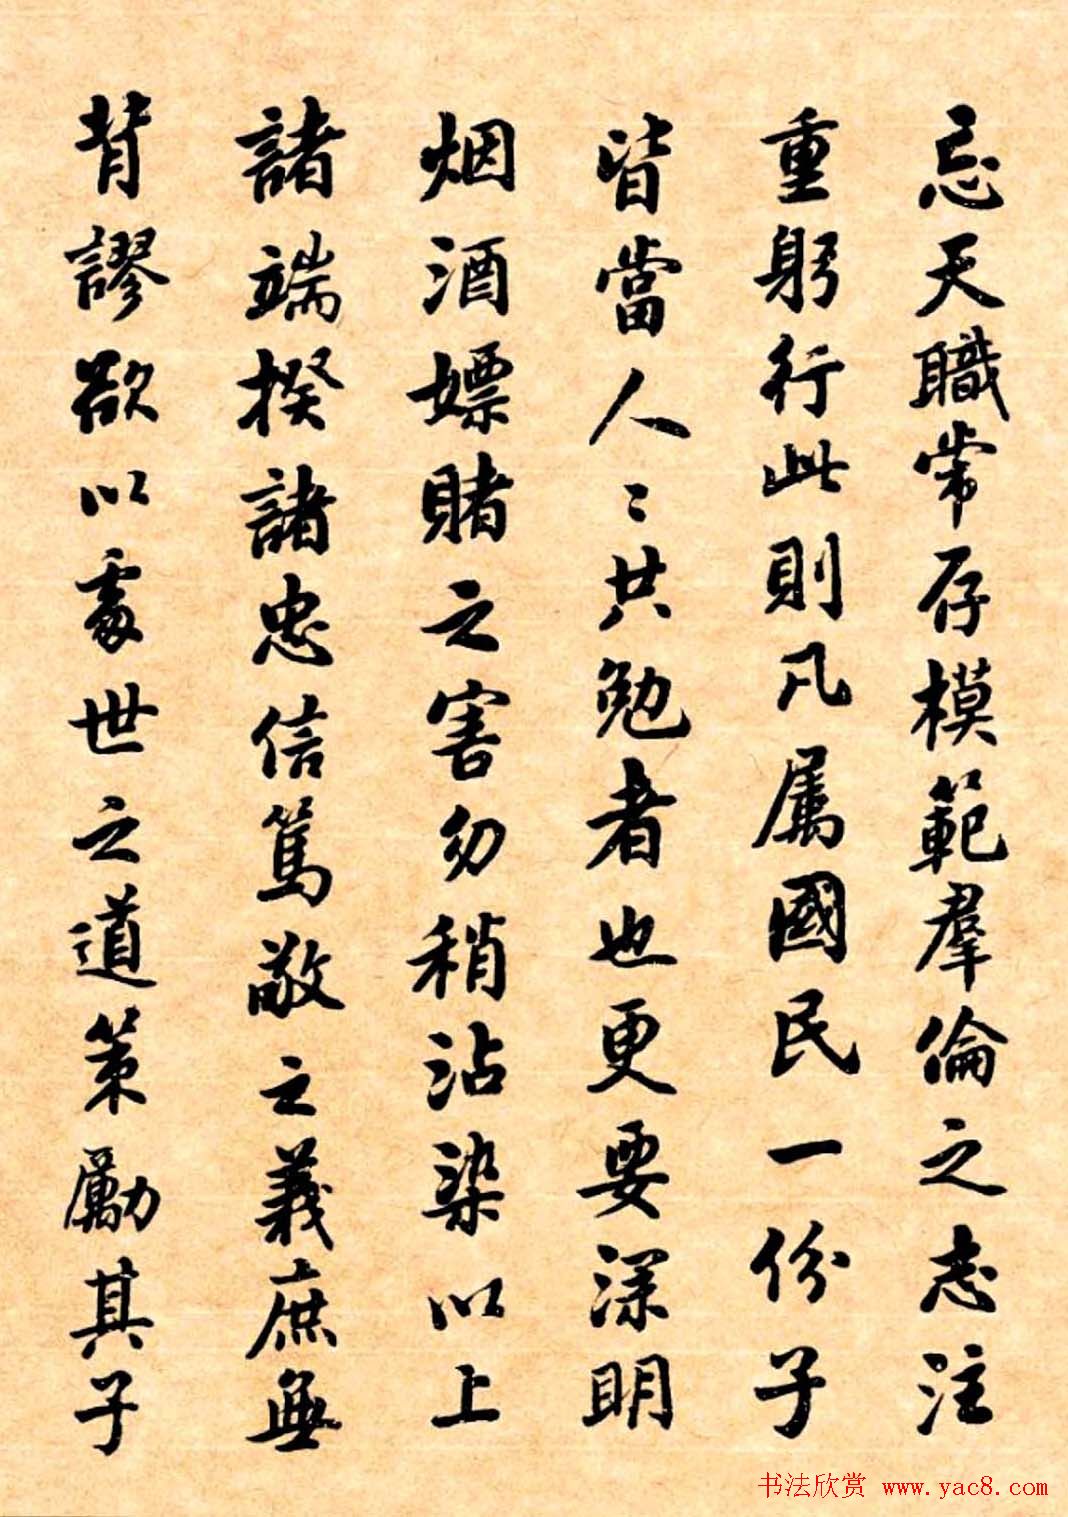 忌天職常存模範羣倫之志注
重躬行此則凡属國民一份子
皆當人〻共勉者也更要深明
烟酒嫖賭之害勿稍沾染以上
諸端揆諸忠信篤敬之義庶無
背謬欲以處世之道策勵其子
书法欣赏 www.yac8.com